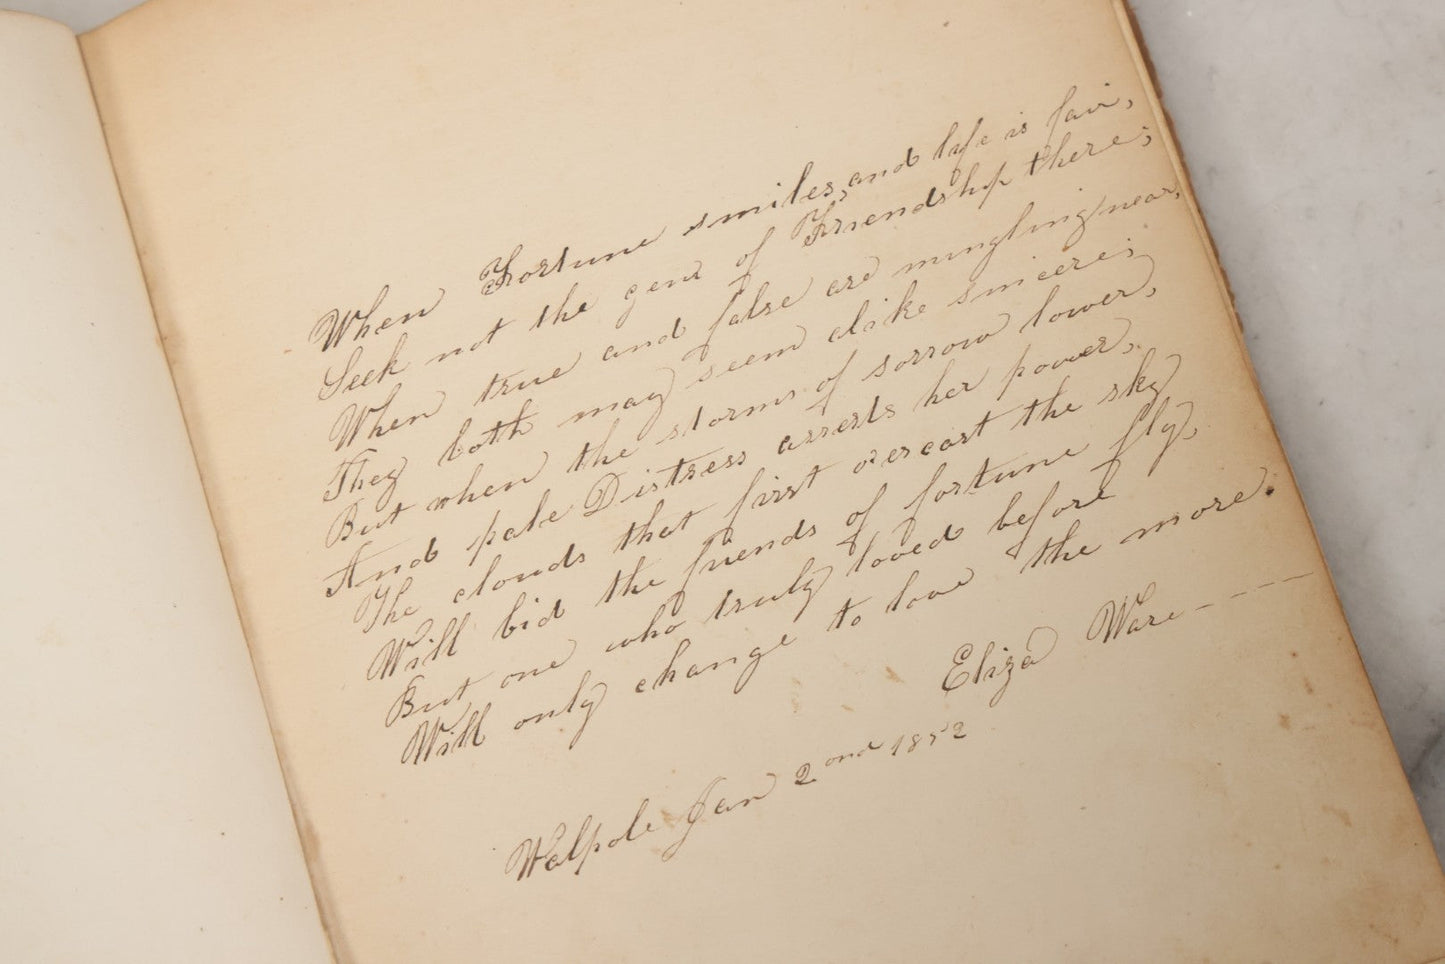 When Fortune smiles, and life is fair,
Seek not the gem of Friendship there;
When true and false are mingling near,
They both may seem alike sincere;
But when the storms of sorrow lower,
And pale Distress asserts her power,
The clouds that first overcast the sky
Will bid the friends of fortune fly,
But one who truly loved before
Will only change to love the more.
Eliza Ware - - - -
Walpole Jan 2ond 1852